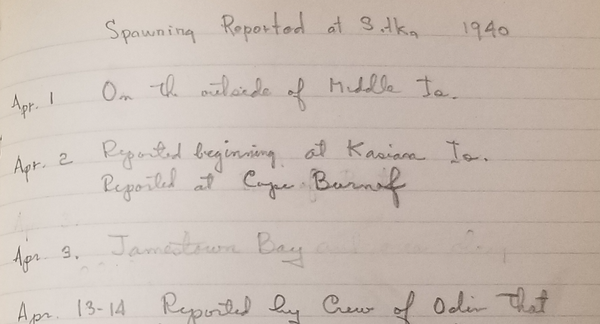 Spawning Reported at Sitka 1940
Apr. 1 On the outside of Middle Is.
Apr. 2 Reported beginning at Kasiana Is.
Reported at Cape Burnof
Apr. 3. Jamestown Bay
Apr. 13-14 Reported by Crew of Odin that